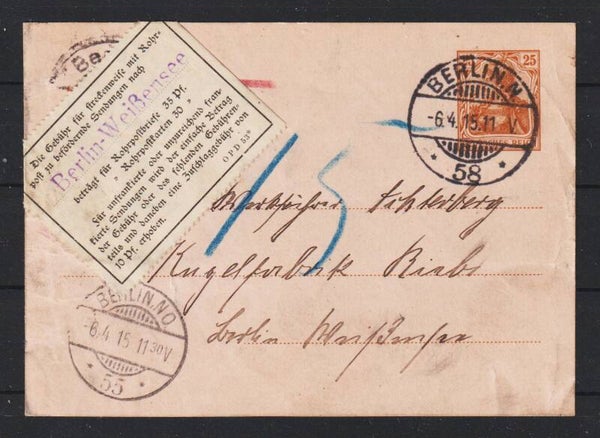 Be
Die Gebühr für streckenweise mit Rohr-
post zu befördernde Sendungen nach
Berlin-Weißensee
beträgt für Rohrpostbriefe 35 Pf.
" Rohrpostkarten 30 "
Für unfrankierte oder unzureichend fran-
kierte Sendungen wird der einfache Betrag
der Gebühr oder des fehlenden Gebühren-
teils und daneben eine Zuschlaggebühr von
10 Pf. erhoben.
OPD 53ᵃ
25
BERLIN.N
-6.4.15.11-V
* 58 *
15
Werkführer
Kugelfabrik
Berlin Weißensee
BERLIN.NO
-6.4.15 11³⁰V
* 55 *